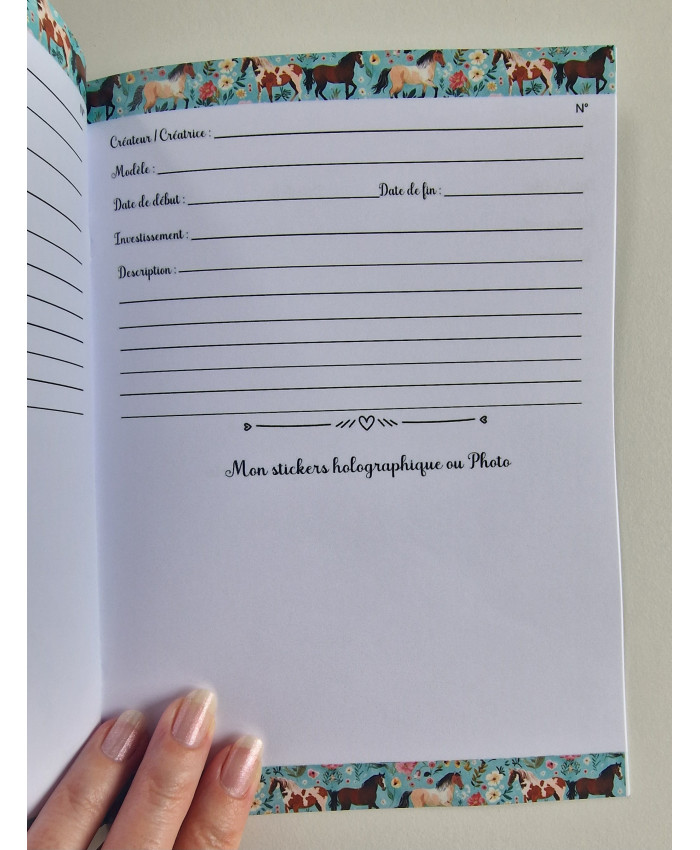 N°
Créateur / Créatrice :
Modèle :
Date de début : Date de fin :
Investissement :
Description :
Mon stickers holographique ou Photo